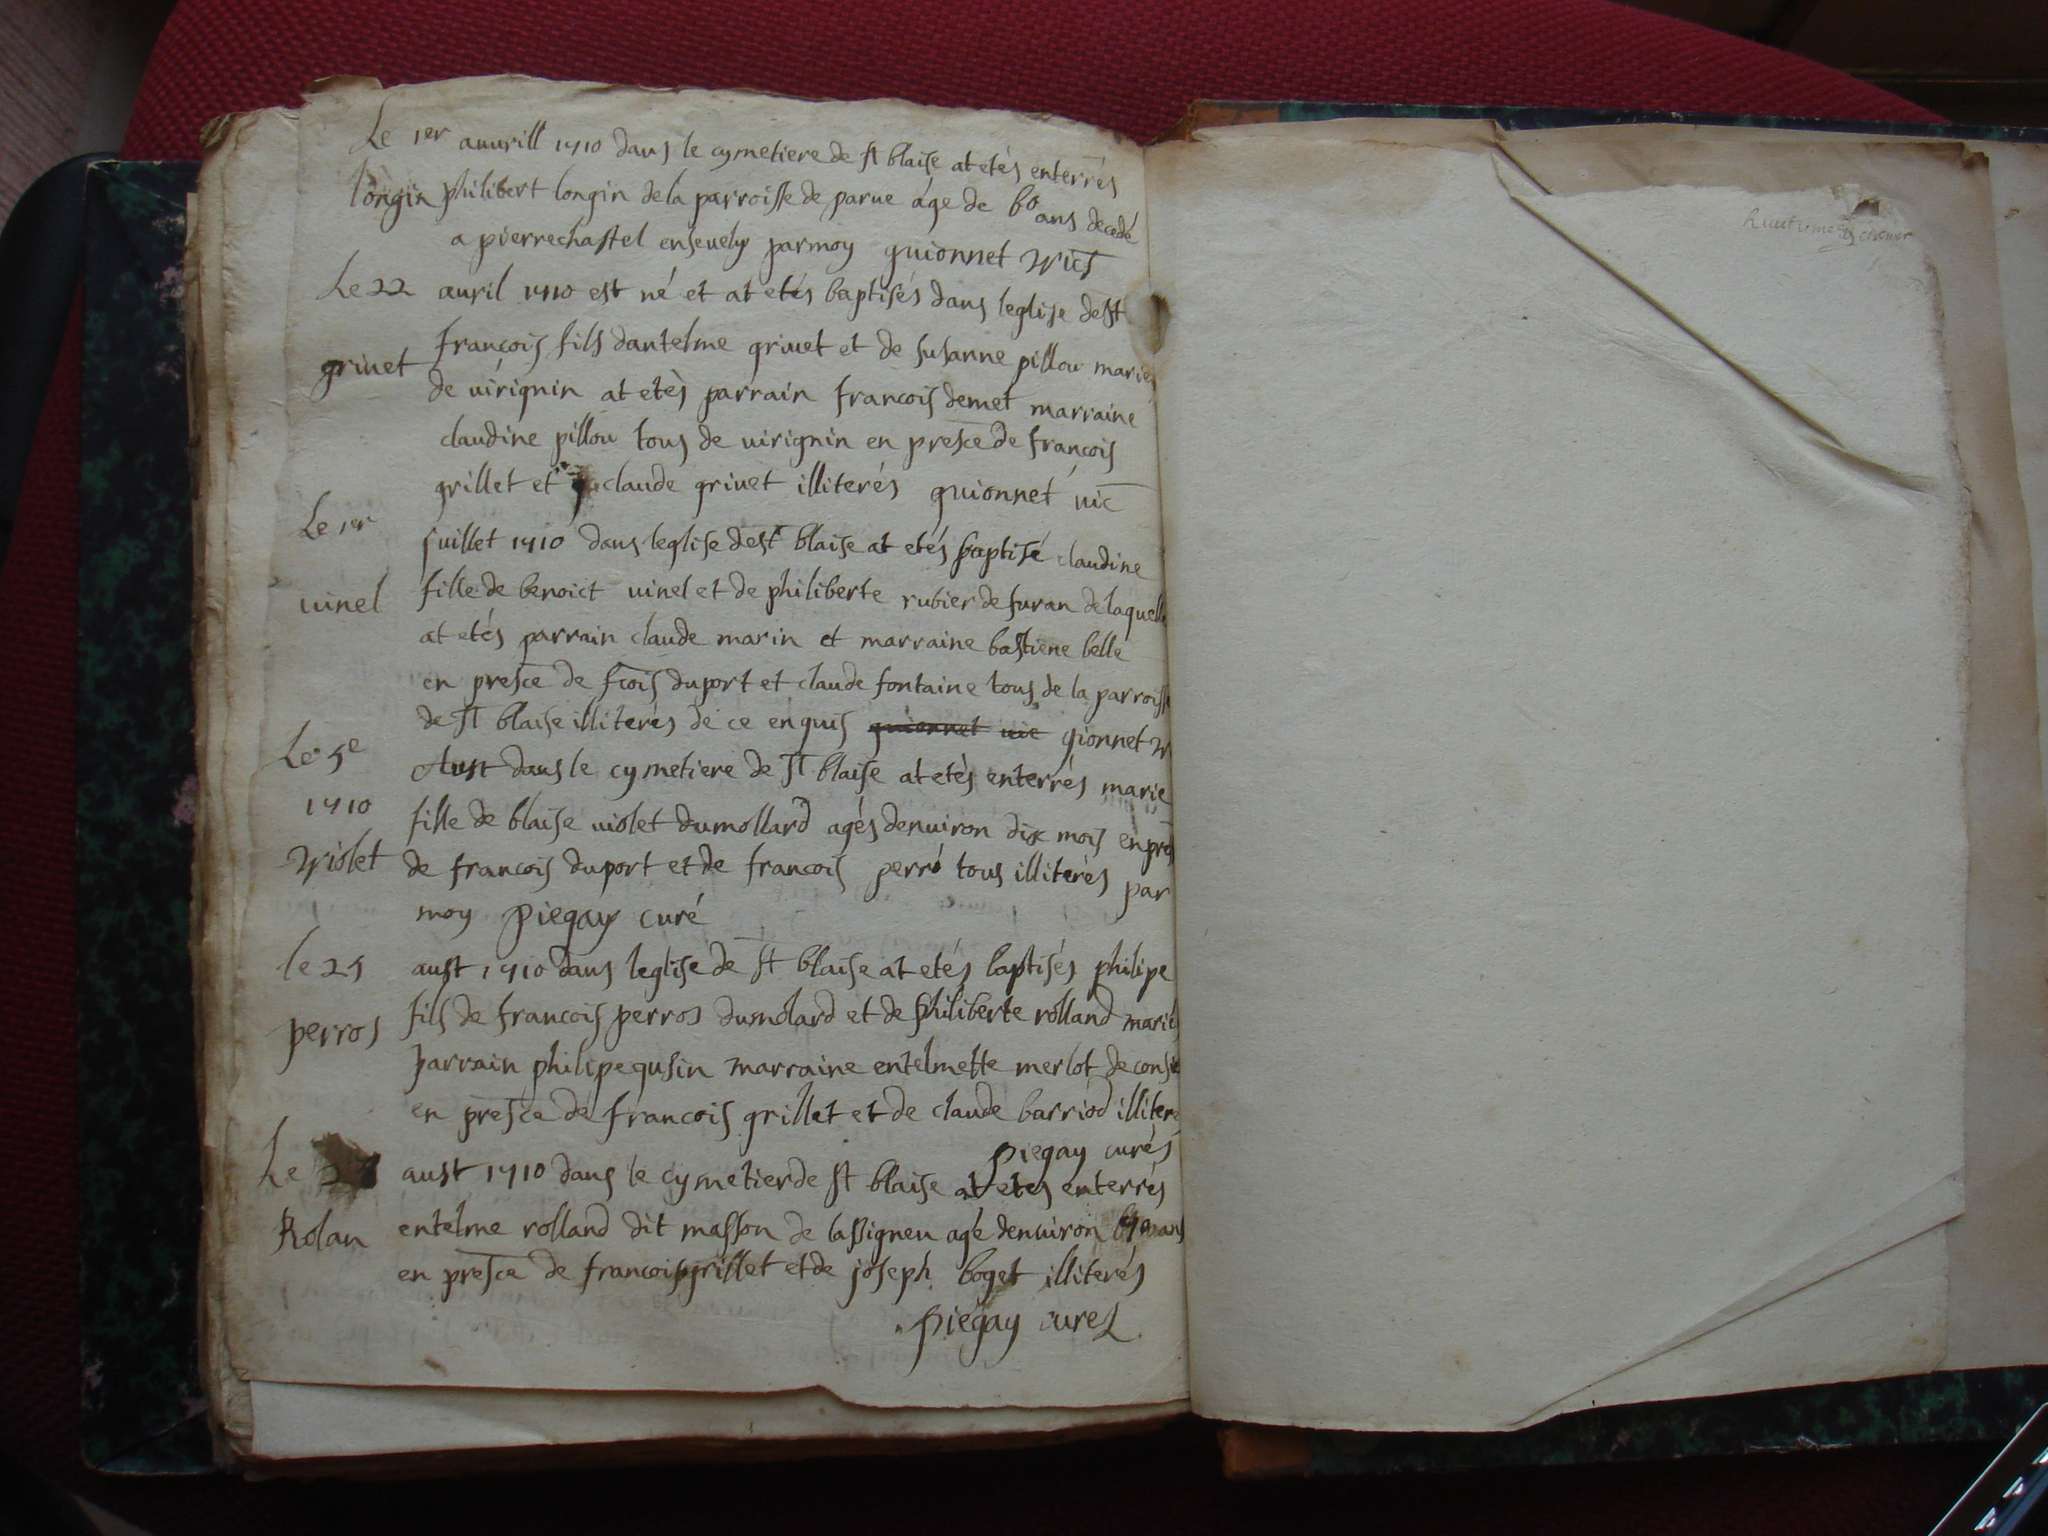 Le 1er auurill 1710 dans le cymetiere de st blaise at etés enterrés
longin philibert longin de la parroisse de parue áge de 60 ans decedé
a pierrechastel enseuely par moy guionnet vict
Le 22 auril 1710 est né et at etés baptisés dans leglise de st
francois fils dantelme griuet et de susanne pillou mariés
griuet
de uirignin at etès parrain francois demet marraine
claudine pillou tous de uirignin en presce de francois
grillet et claude griuet illiterés guionnet uic
Le 1er juillet 1710 dans leglise de st blaise at etés baptisé claudine
uinel fille de benoict uinel et de philiberte rubier de furan de laquelle
at etés parrain claude marin et marraine bastiene belle
en presce de fcois duport et claude fontaine tous de la parroisse
de st blaise illiterés de ce enquis guionnet uic gionnet v
Le 5e Aust dans le cymetiere de st blaise at etès enterrés marie
1710 fille de blaise uiolet du mollard agés denuiron dix mois en pres
Violet de francois duport et de francois perró tous illiterés par
moy piegay curé
le 25 aust 1710 dans leglise de st blaise at etés baptisés philipe
perros fils de francois perros du molard et de philiberte rolland mariés
parrain philipe gusin marraine entelmette merlot de
en presce de francois grillet et de claude barriod illiteré
piegay curés
Le aust 1710 dans le cymetier de st blaise at etes enterrés
Rolan entelme rolland dit masson de lassigneu agé denuiron ans
en presce de francois grillet et de joseph boget illiterés
piegay cureZ